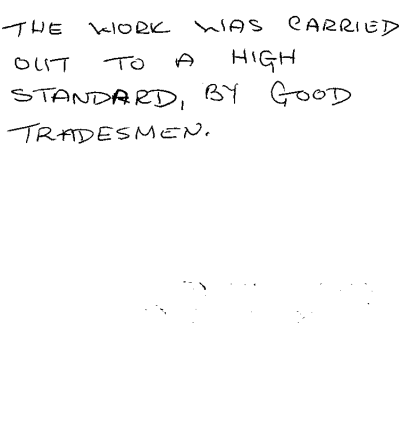 THE WORK WAS CARRIED
OUT TO A HIGH
STANDARD, BY GOOD
TRADESMEN.